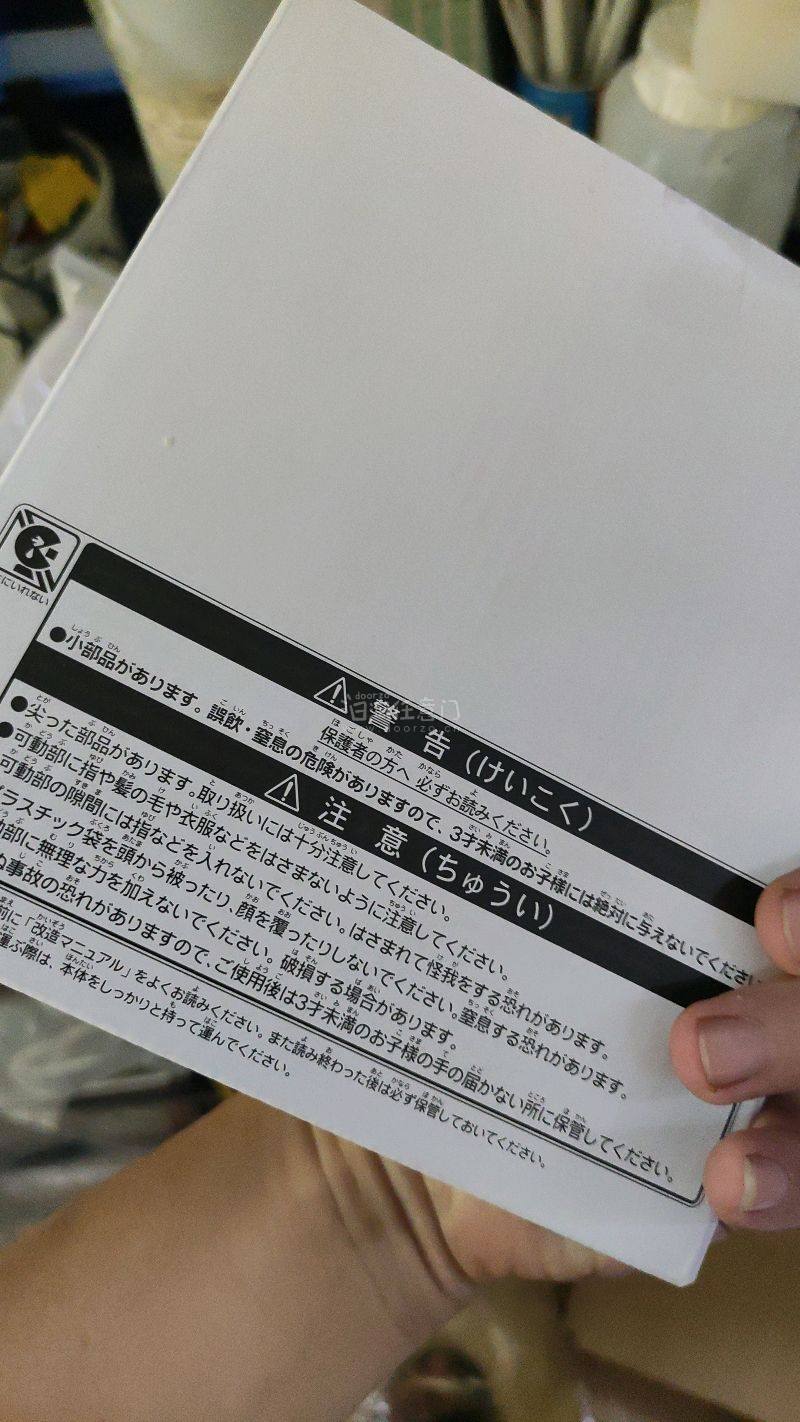 にいれない
警告(けいこく)
保護者の方へ 必ずお読みください。
●小部品があります。誤飲・窒息の危険がありますので、3才未満のお子様には絶対に与えないでください
注意(ちゅうい)
●尖った部品があります。取り扱いには十分注意してください。
●可動部に指や髪の毛や衣服などをはさまないように注意してください。
可動部の隙間には指などを入れないでください。はさまれて怪我をする恐れがあります。
ラスチック袋を頭から被ったり、顔を覆ったりしないでください。窒息する恐れがあります。
動部に無理な力を加えないでください。破損する場合があります。
ぬ事故の恐れがありますので、ご使用後は3才未満のお子様の手の届かない所に保管してください。
前に「改造マニュアル」をよくお読みください。また読み終わった後は必ず保管しておいてください。
運ぶ際は、本体をしっかりと持って運んでください。
doorzo
任意门